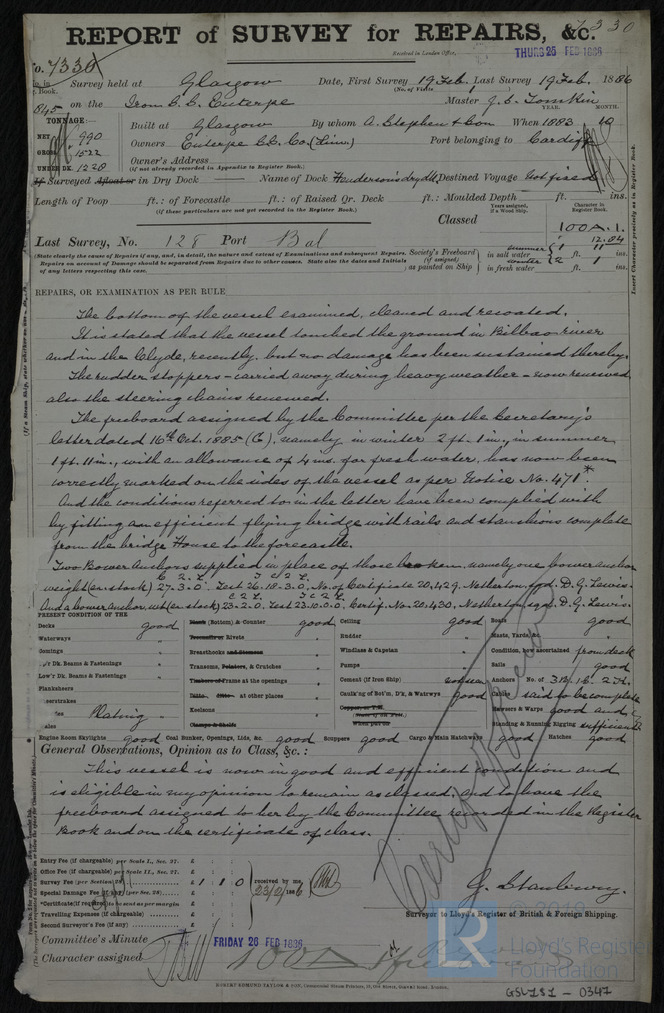 REPORT of SURVEY for REPAIRS, &c. 7330
Received in London Office, THURS 25 FEB 1886
No. 7330
Survey held at Glasgow Date, First Survey 19 Feb. Last Survey 19 Feb. 1886
(No. of Visits 1)
845 on the Iron S.S. Euterpe Master J. S. Tomkin
TONNAGE:— YEAR. MONTH.
Built at Glasgow By whom A. Stephen & Son When 1883 10
NET 990
GROSS 1522
UNDER DK. 1228
Owners Euterpe SS. Co. (Lim.) Port belonging to Cardiff
Owners' Address
(If not already recorded in Appendix to Register Book.)
If Surveyed Afloat or in Dry Dock — Name of Dock Henderson's dry dk. Destined Voyage Not fixed
Length of Poop ft.: of Forecastle ft.: of Raised Qr. Deck ft.: Moulded Depth ft. ins.
(If these particulars are not yet recorded in the Register Book.)
Years assigned, if a Wood Ship.
Character in Register Book.
Classed 100A.1.
12.84
Last Survey, No. 128 Port Bal
(State clearly the cause of Repairs (if any, and, in detail, the nature and extent of Examinations and subsequent Repairs.
Repairs on account of Damage should be separated from Repairs due to other causes. State also the dates and Initials
of any letters respecting this case.
Society's Freeboard (if assigned) as painted on Ship
summer in salt water 1 ft. 11 ins.
winter in fresh water 2 ft. 1 ins.
Insert Character precisely as in Register Book.
REPAIRS, OR EXAMINATION AS PER RULE
The bottom of the vessel examined, cleaned and recoated.
It is stated that the vessel touched the ground in Bilbao river
and in the Clyde, recently, but no damage has been sustained thereby.
The rudder stoppers – carried away during heavy weather – now renewed
also the steering chains renewed.
The freeboard assigned by the Committee per the Secretary's
letter dated 16th Oct. 1885 (C), namely in winter 2 ft. 1 in., in summer
1 ft. 11 in., with an allowance of 4 ins. for fresh water, has now been
correctly marked on the sides of the vessel as per Notice No. 471*.
And the conditions referred to in the letter have been complied with
by fitting an efficient flying bridge with rails and stanchions complete
from the bridge House to the forecastle.
Two Bower Anchors supplied in place of those broken, namely one bower anchor
weight (ex. stock) 27-3-0. Test 26-18-3-0, No. of Certificate 20,429. Netherton, sgd. D. G. Lewis.
And a bower anchor, wt (ex stock) 23-2-0. Test 23-10-0-0. Certif. No. 20,430, Netherton, sgd. D. G. Lewis.
PRESENT CONDITION OF THE
Decks good
Waterways "
Comings "
Up'r Dk. Beams & Fastenings "
Low'r Dk. Beams & Fastenings "
Planksheers
Plating "
(Bottom) & Counter good
Treenails or Rivets "
Breasthooks and Stemson "
Transoms, Pointers, & Crutches "
Timbers or Frame at the openings "
Ditto Ditto at other places "
Keelsons "
Clamps & Shelfs
Ceiling good
Rudder "
Windlass & Capstan "
Pumps "
Cement (if Iron Ship)
Caulk'ng of Bot'm, D'k, & Watrwys good
Boats good
Masts, Yards, &c. "
Condition, how ascertained from deck
Sails good
Anchors No. of 3B. 1S. 2K.
Cables said to be complete
Hawsers & Warps good and
Standing & Running Rigging sufficient
Engine Room Skylights good Coal Bunker, Openings, Lids, &c. good Scuppers good Cargo & Main Hatchways good Hatches good
General Observations, Opinion as to Class, &c.:
This vessel is now in good and efficient condition and
is eligible in my opinion to remain as classed, and to have the
freeboard assigned to her by the Committee recorded in the Register
Book and on the certificate of class.
Entry Fee (if chargeable) per Scale I., Sec. 27. £
Office Fee (if chargeable) per Scale II., Sec. 27. £
Survey Fee (per Section 28) £ 1 1 0 received by me, 23/2/1886
Special Damage Fee (if any) (per Sec. 28) £
*Certificate (if required) to be sent as per margin
Travelling Expenses (if chargeable) £
Second Surveyor's Fee (if any) £
G. Stanbury.
Surveyor to Lloyd's Register of British & Foreign Shipping.
Committee's Minute FRIDAY 26 FEB 1886
Character assigned 100A1
ROBERT EDMUND TAYLOR & SON, Commercial Steam Printers, 19, Old Street, Goswell Road, London.
LR © 2019
Lloyd's Register
Foundation
GSL181 – 0347